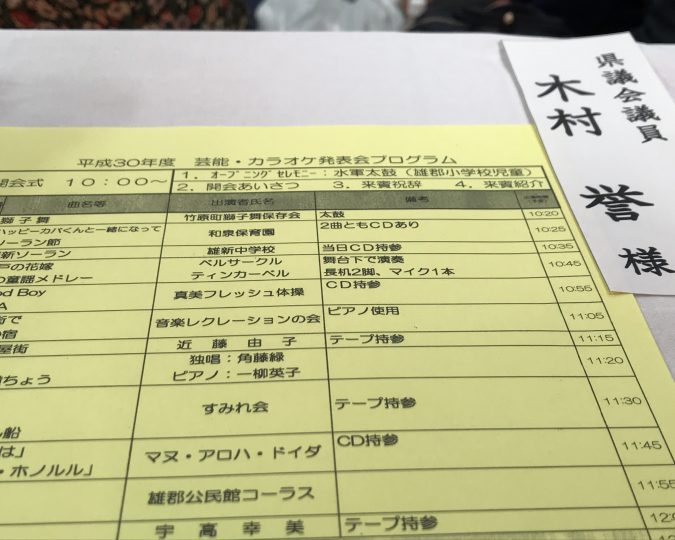 県議会議員
木村 誉 様
平成30年度 芸能・カラオケ発表会プログラム
開会式 10:00～ 1．オープニングセレモニー：水軍太鼓（雄郡小学校児童）
2．開会あいさつ 3．来賓祝辞 4．来賓紹介
曲名等 出演者氏名 備考
獅子舞 竹原町獅子舞保存会 太鼓 10:20
ハッピーカバくんと一緒になって 和泉保育園 2曲ともCDあり 10:25
ソーラン節
新ソーラン 雄新中学校 当日CD持参 10:35
戸の花嫁 ベルサークル 舞台下で演奏 10:45
の童謡メドレー ティンカーベル 長机2脚、マイク1本
od Boy 真美フレッシュ体操 CD持参 10:55
A
街で 音楽レクレーションの会 ピアノ使用 11:05
の宿
屋街 近藤由子 テープ持参 11:15
独唱：角藤緑 11:20
ちょう ピアノ：一柳英子
すみれ会 テープ持参 11:30
船
は」 マヌ・アロハ・ドイダ CD持参 11:45
・ホノルル」
雄郡公民館コーラス 11:55
宇高幸美 テープ持参 12:0